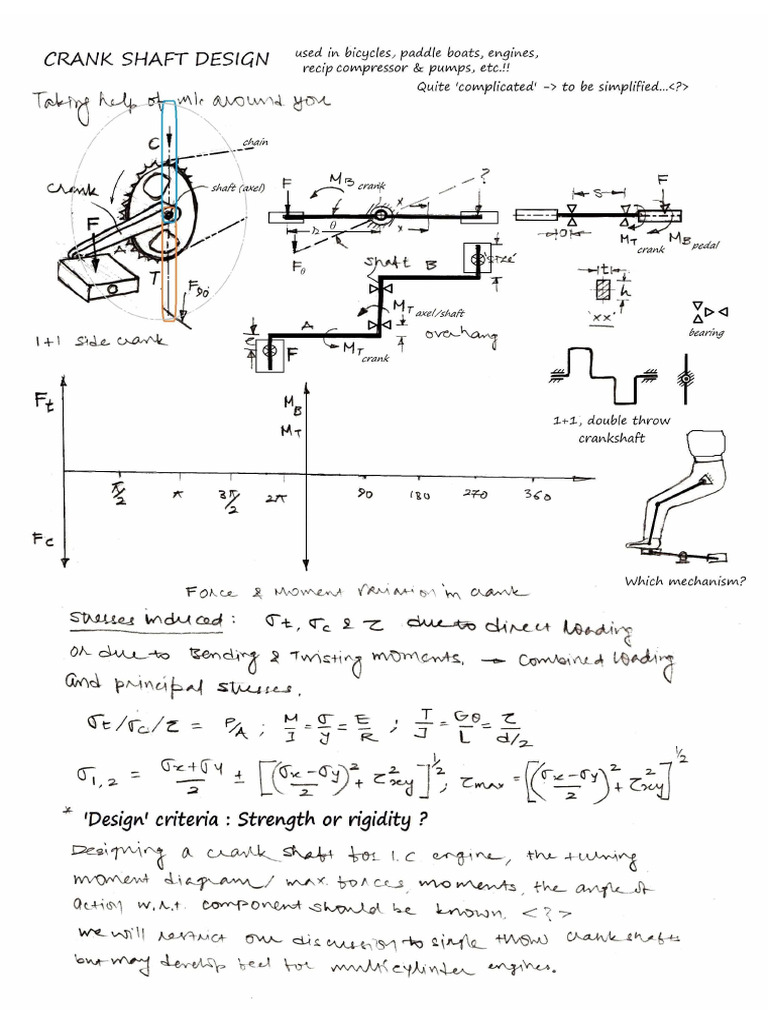 CRANK SHAFT DESIGN
used in bicycles, paddle boats, engines,
recip compressor & pumps, etc.!!
Quite 'complicated' -> to be simplified...<?>
Taking help of m/c around you
C
chain
crank
shaft (axel)
F
A
T
F90°
1+1 side crank
F
MB crank
?
r
θ
x
x
Fθ
shaft B
'size'
MT axel/shaft
A
overhang
e
F
MT crank
S
F
o
MT crank
MB pedal
t
h
'xx'
bearing
1+1, double throw
crankshaft
Which mechanism?
Ft
MB
MT
π/2 π 3π/2 2π 90 180 270 360
Fc
Force & Moment variation in crank
Stresses induced: σt, σc & τ due to direct loading
or due to Bending & Twisting moments. → Combined loading
and principal stresses.
σt/σc/τ = P/A ; M/I = σ/y = E/R ; T/J = Gθ/L = τ/(d/2)
σ1,2 = (σx+σy)/2 ± [((σx-σy)/2)² + τ²xy]^1/2 ; τmax = [((σx-σy)/2)² + τ²xy]^1/2
* 'Design' criteria : Strength or rigidity ?
Designing a crank shaft for I.C engine, the turning
moment diagram/ max. forces, moments, the angle of
action w.r.t. component should be known. <?>
we will restrict our discussion to simple throw crankshafts
but may develop feel for multicylinder engines.